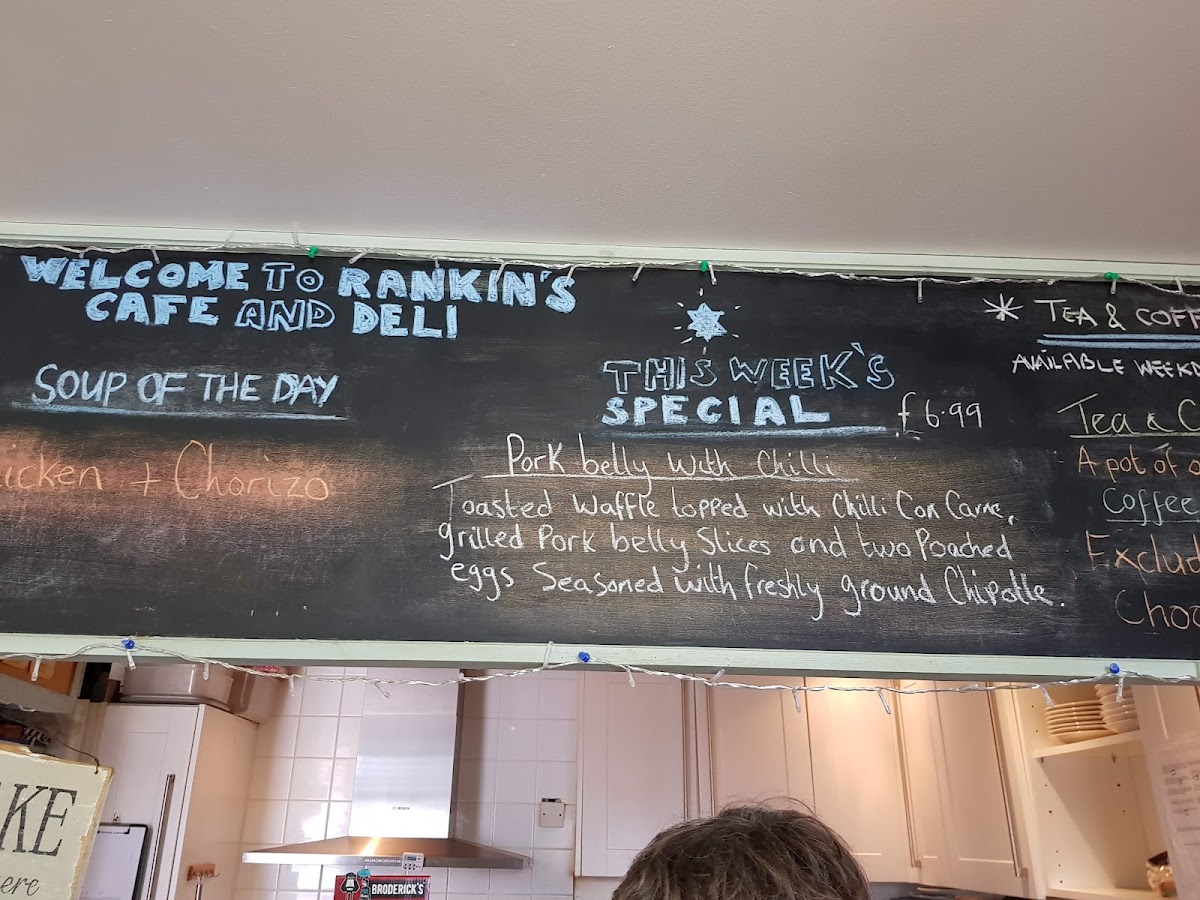 WELCOME TO RANKIN'S
CAFE AND DELI
SOUP OF THE DAY
icken + Chorizo
THIS WEEK'S
SPECIAL £6.99
Pork belly with Chilli
Toasted Waffle topped with Chilli Con Carne,
grilled Pork belly Slices and two Poached
eggs Seasoned with freshly ground Chipotle.
TEA & COFF
AVAILABLE WEEKD
Tea & C
A pot of
Coffee
Exclud
Choc
KE
ere
BOSCH
BRODERICK'S